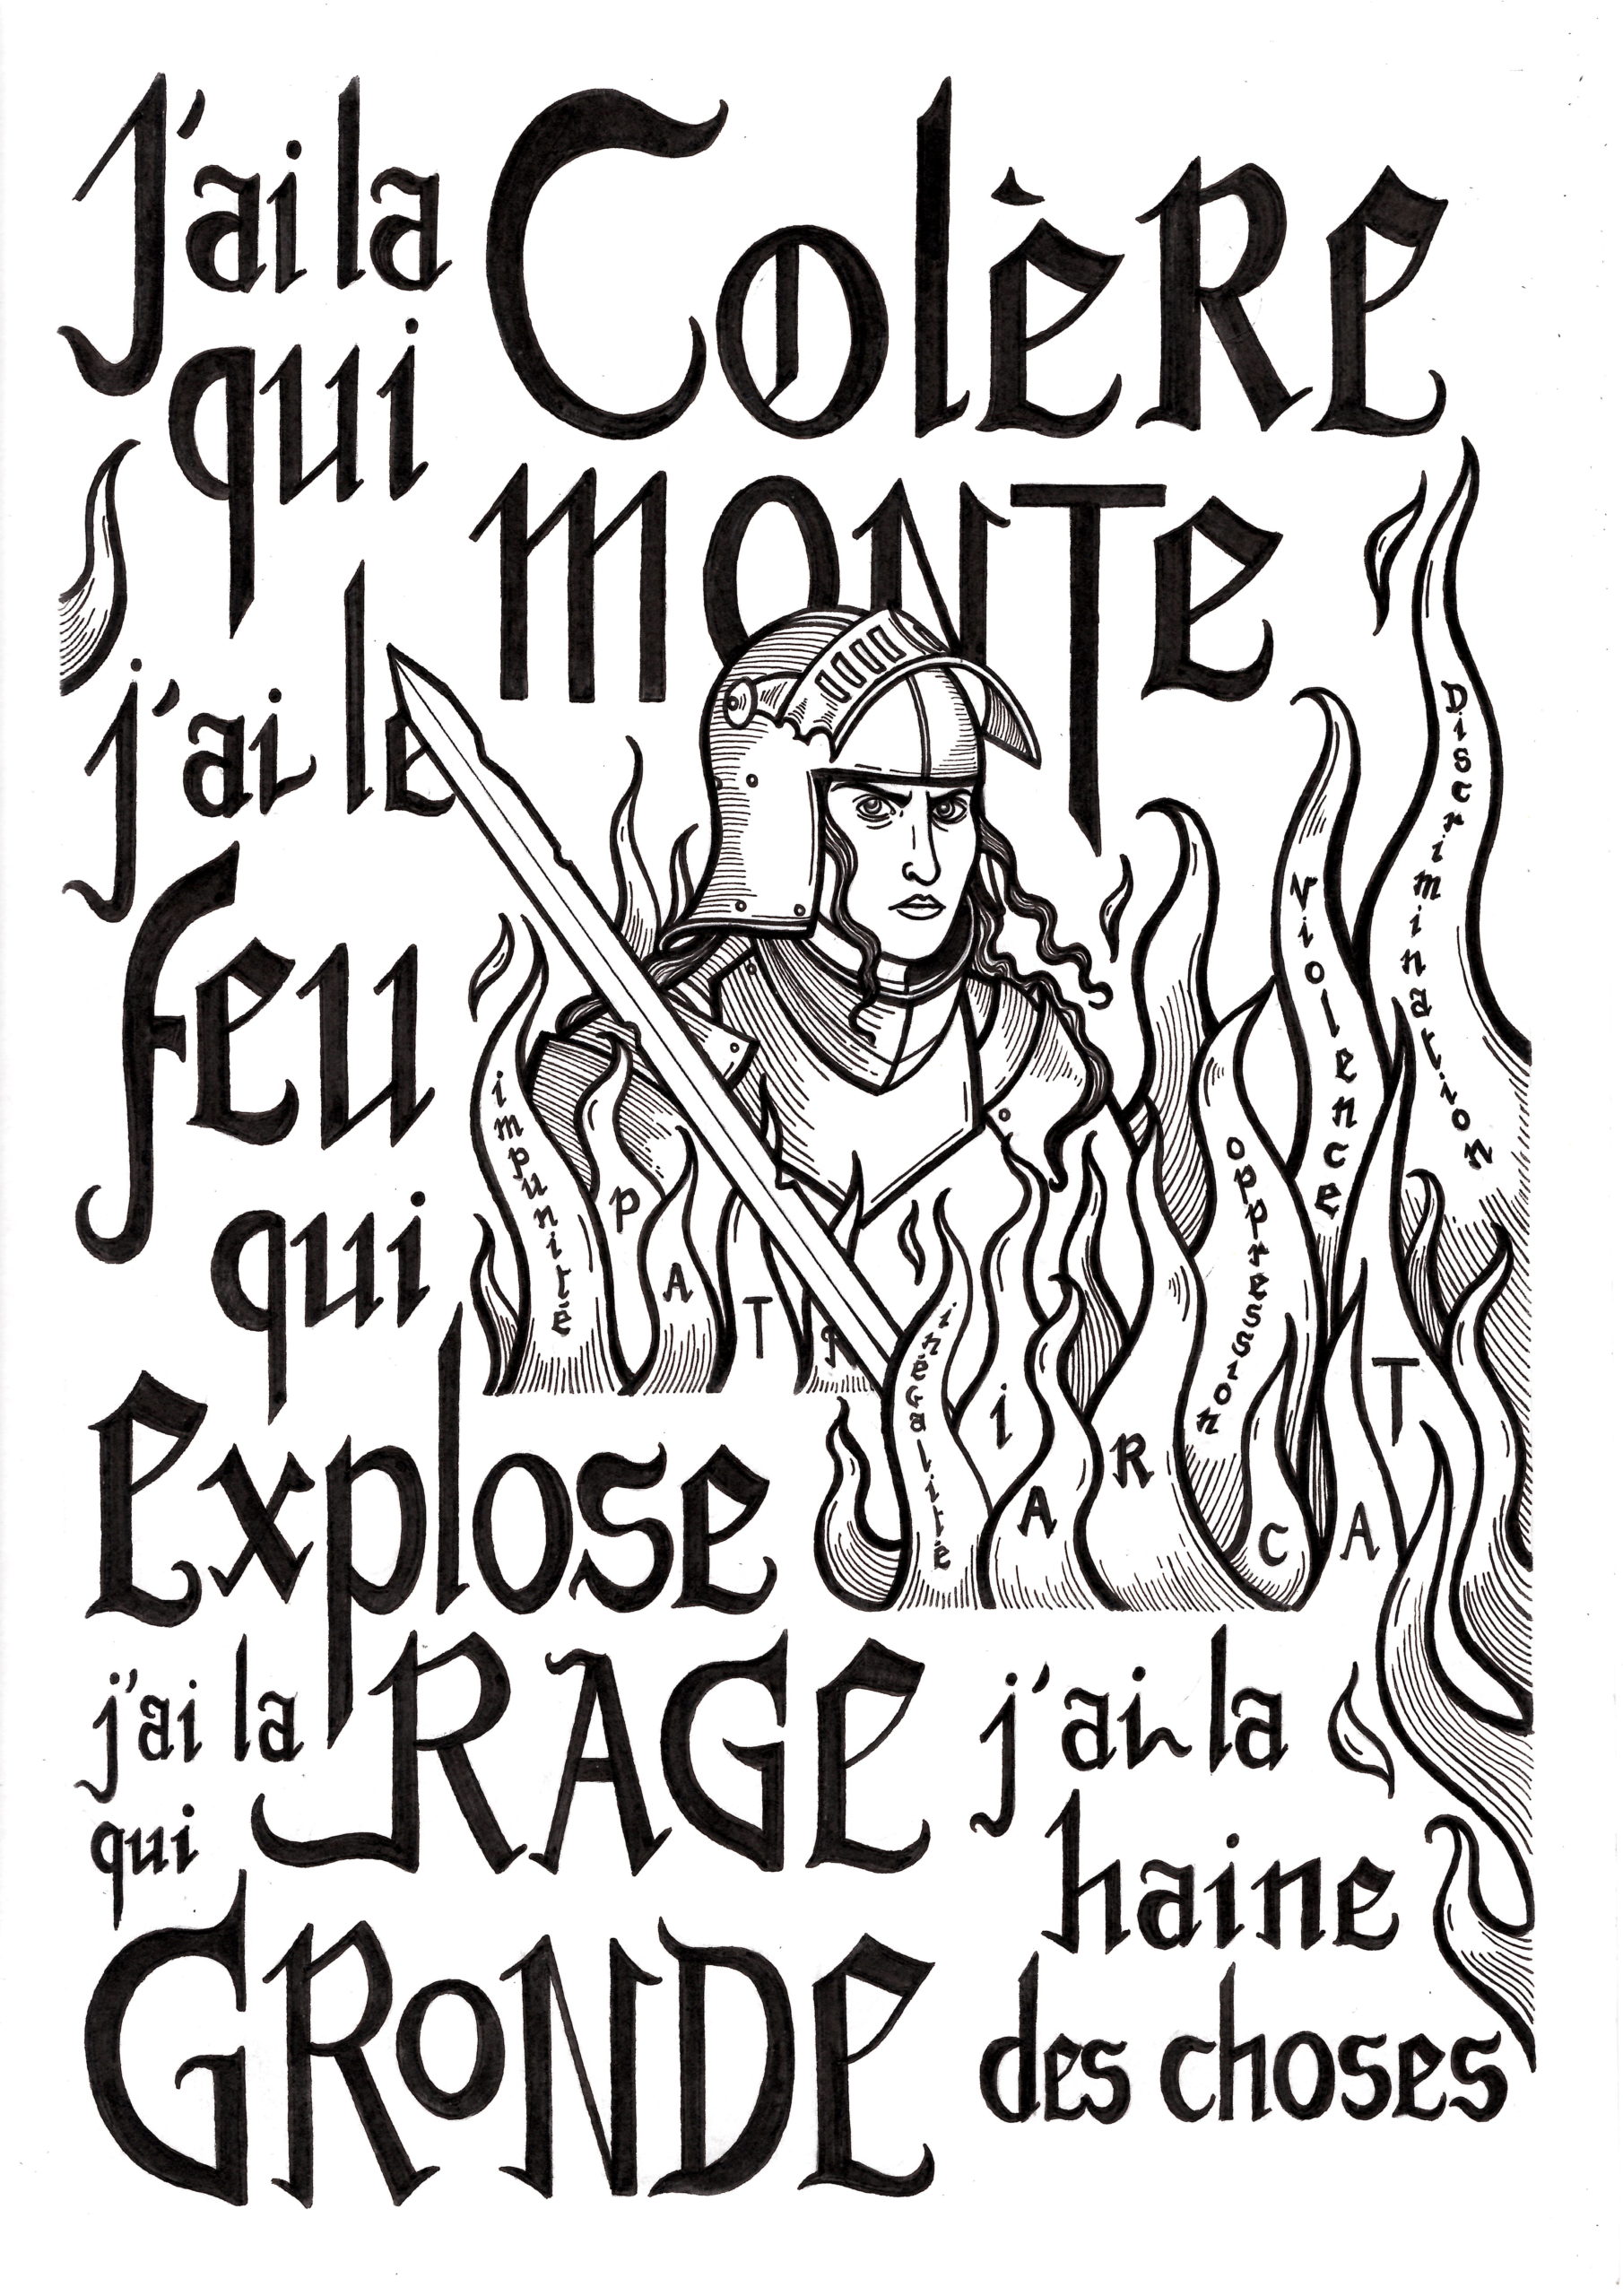 J'ai la Colère
qui monte
j'ai le
feu
qui
explose
j'ai la RAGE
qui
GRONDE
j'ai la
haine
des choses
impunité
PATRiARCAT
inégalité
oppression
violence
Discrimination